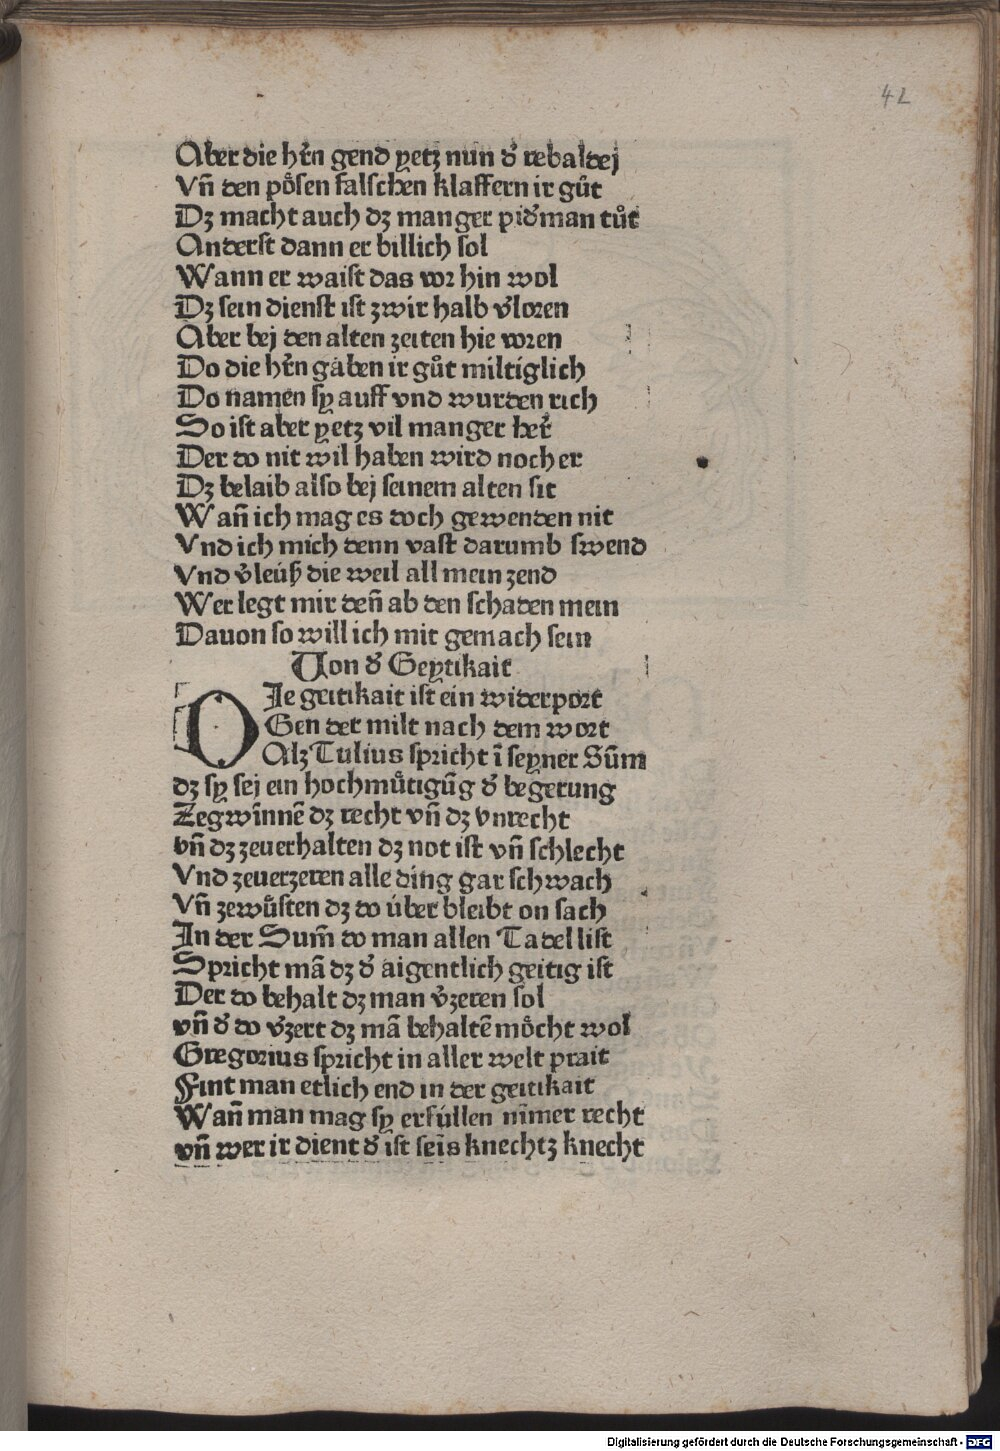 42
Aber die hr̃n gend yetz nun d̕ rebaldej
Vñ den poͤsen falschen klaffern ir guͦt
Dz macht auch dz manger pid̕man tuͦt
Anderst dann er billich sol
Wann er waist das vor hin wol
Dz sein dienst ist zwir halb v̕loren
Aber bej den alten zeiten hie voren
Do die hr̃n gaben ir guͦt miltiglich
Do namen sy auff vnd wurden rich
So ist aber yetz vil manger her̃
Der do nit wil haben wird noch er
Dz belaib also bej seinem alten sit
Wañ ich mag es doch gewenden nit
Vnd ich mich denn vast darumb swend
Vnd v̕leúß die weil all mein zend
Wer legt mir deñ ab den schaden mein
Dauon so will ich mit gemach sein
Von d̕ Geytikait
DIe geitikait ist ein widerport
Gen der milt nach dem wort
Alz Tulius spricht ĩ seyner Sũm
dz sy sej ein hochmuͤtigũg d̕ begerung
Zegwĩnnẽ dz recht vñ dz vnrecht
vñ dz zeuerhalten dz not ist vñ schlecht
Vnd zeuerzeren alle ding gar schwach
Vñ zewuͤsten dz do úber bleibt on sach
In der Sum̃ do man allen Tadel list
Spricht mã dz d̕ aigentlich geitig ist
Der do behalt dz man v̕zeren sol
vñ d̕ do v̕zert dz mã behaltẽ moͤcht wol
Gregorius spricht in aller welt prait
Fint man etlich end in der geitikait
Wañ man mag sy erfúllen nĩmer recht
vñ wer ir dient d̕ ist seĩs knechtz knecht
Digitalisierung gefördert durch die Deutsche Forschungsgemeinschaft - DFG